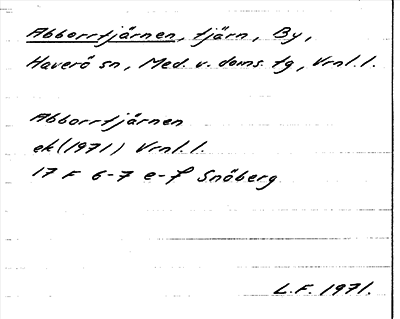 Abborrtjärnen, tjärn, By,
Haverö sn, Med. v. doms. tg, Vrnl. l.
Abborrtjärnen
ek (1971) Vrnl. l.
17 F 6-7 e-f Snöberg
L.F. 1971.